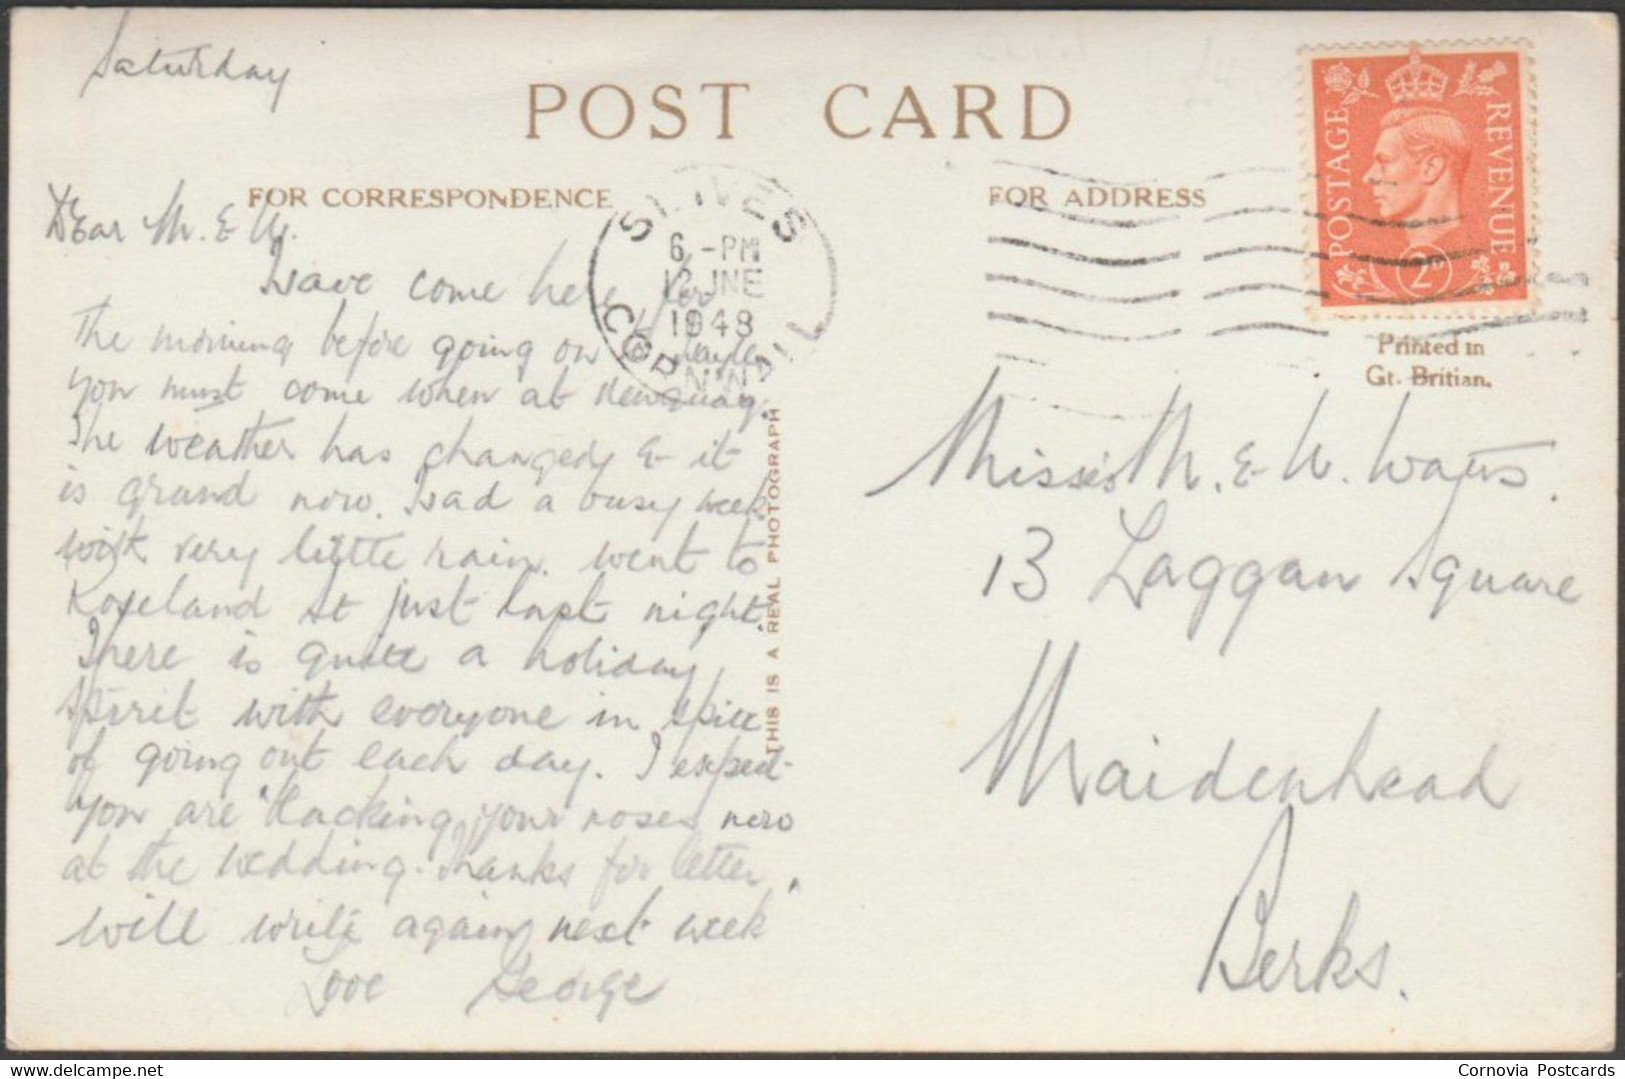 Saturday
POST CARD
FOR CORRESPONDENCE
FOR ADDRESS
ST. IVES
6 - PM
12 JNE
1948
CORNWALL
POSTAGE
REVENUE
2D
Printed in
Gt. Britian.
Dear M. & W.
Have come here for
the morning before going on to
you must come when at Newquay.
The weather has changed & it
is grand now. Had a busy week
with very little rain. went to
Roseland St Just last night.
There is quite a holiday
spirit with everyone in spite
of going out each day. I expect
you are "blacking your noses now
at the wedding. Thanks for letter,
will write again next week
Love George
THIS IS A REAL PHOTOGRAPH
Misses M. & W. Watts.
13 Laggan Square
Maidenhead
Berks.
Cornovia Postcards